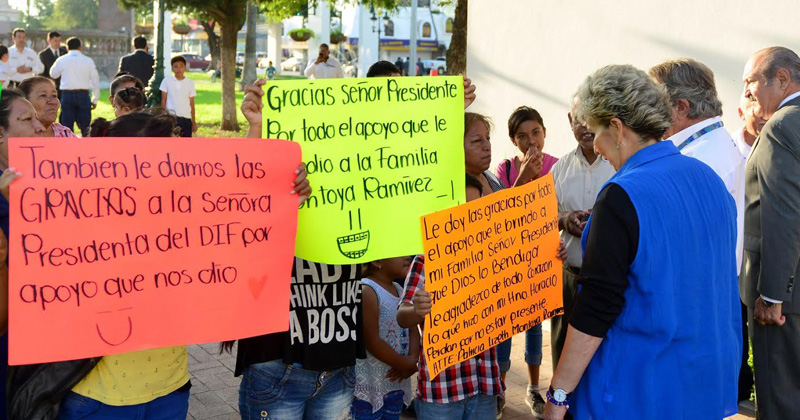 También le damos las
GRACIAS a la Señora
Presidenta del DIF por
apoyo que nos dio
Gracias Señor Presidente
Por todo el apoyo que le
dio a la Familia
ntoya Ramírez
Le doy las gracias por todo
el apoyo que le brindo a
mi Familia Señor Presidente
que Dios lo Bendiga
le agradezco de todo corazón
lo que hizo con mi Hno. Horacio
Perdon por no estar presente.
ATTE Patricia Lizeth Montoya Ramírez
THINK LIKE
A BOSS